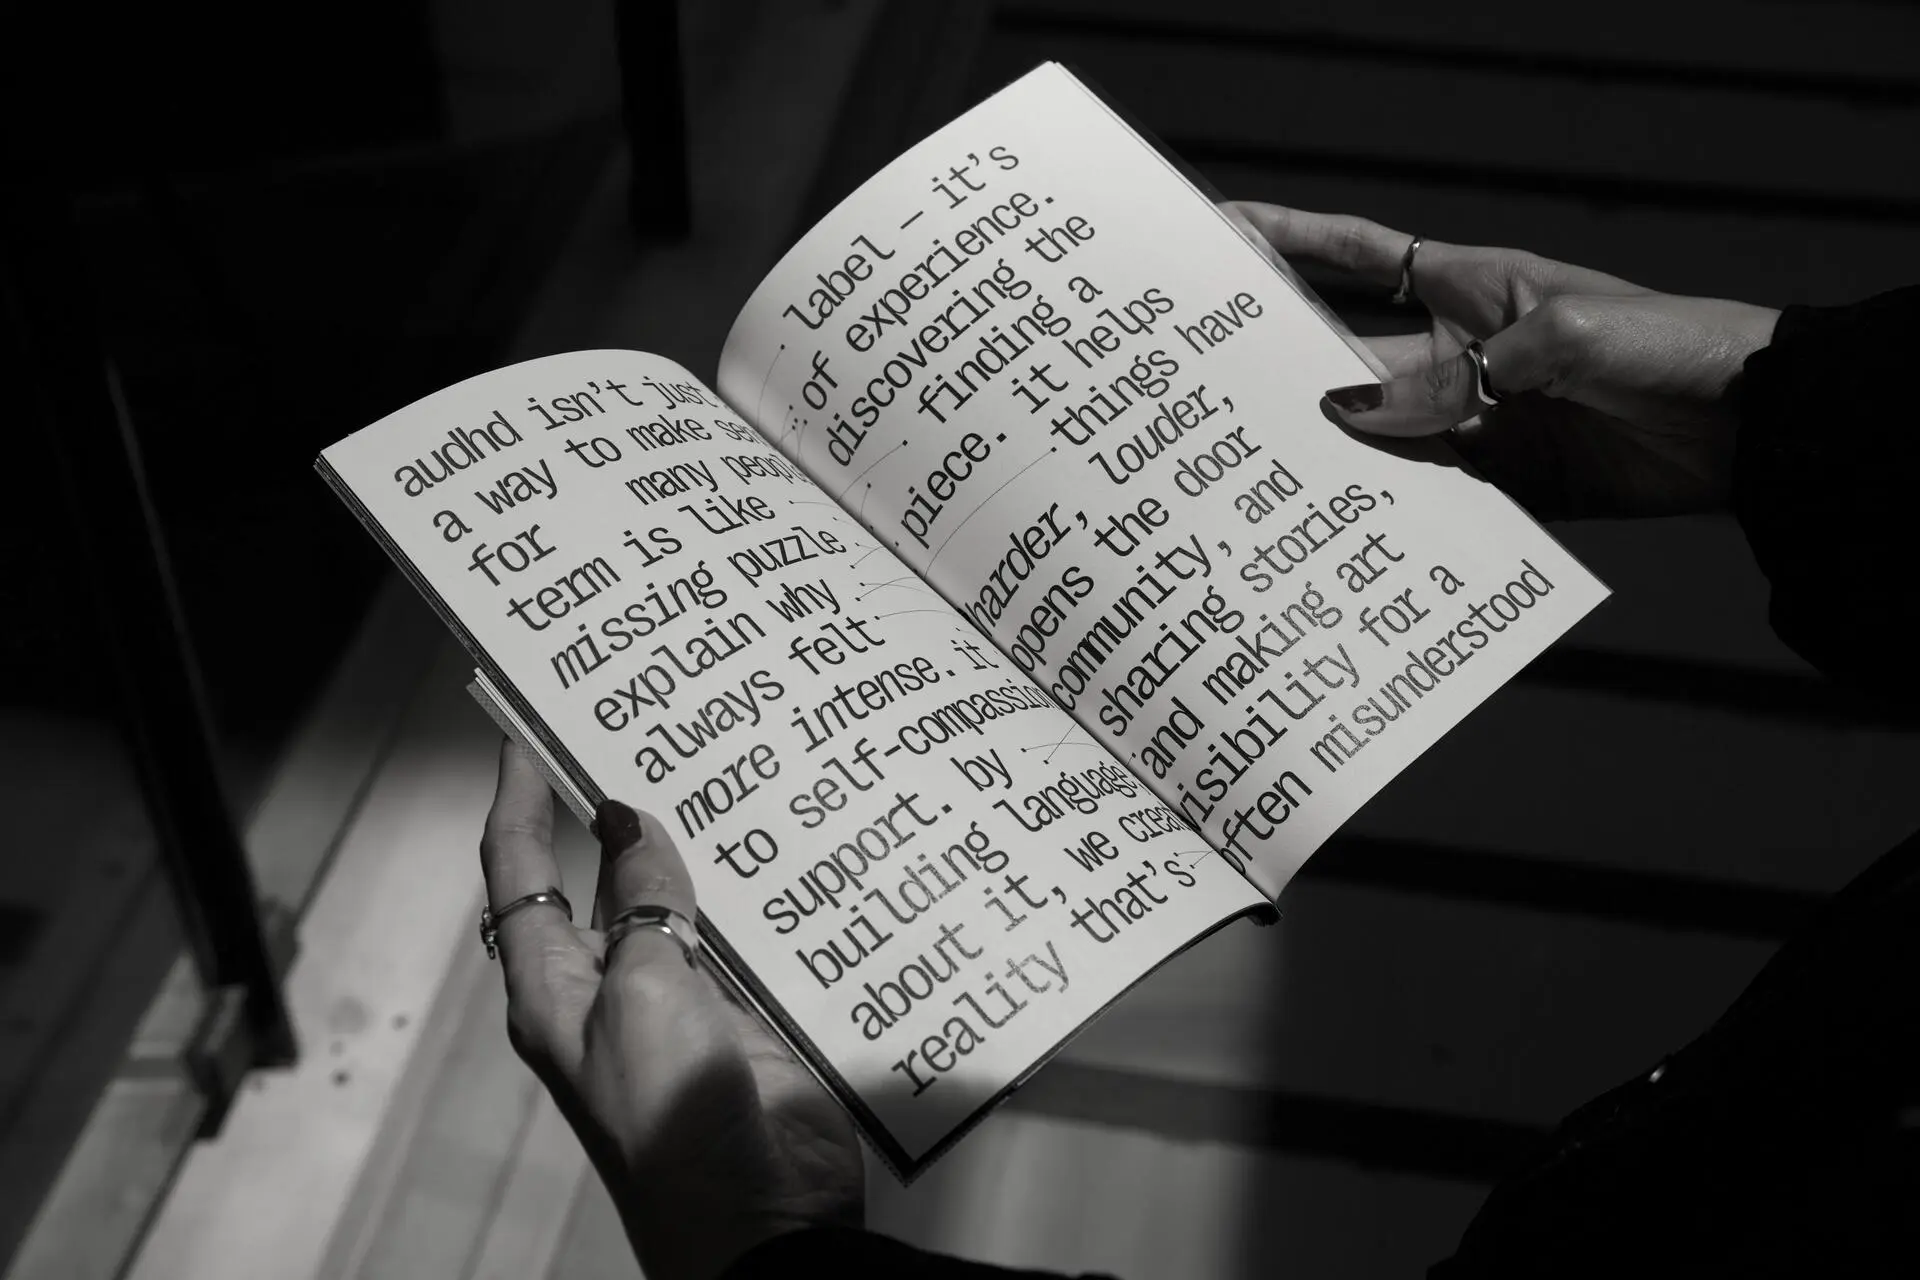 audhd isn't just label — it's
a way to make sen of experience.
for many people discovering the
term is like finding a
missing puzzle piece. it helps
explain why things have
always felt harder, louder,
more intense. it opens the door
to self-compassion community, and
support. by sharing stories,
building language and making art
about it, we creat visibility for a
reality that's often misunderstood